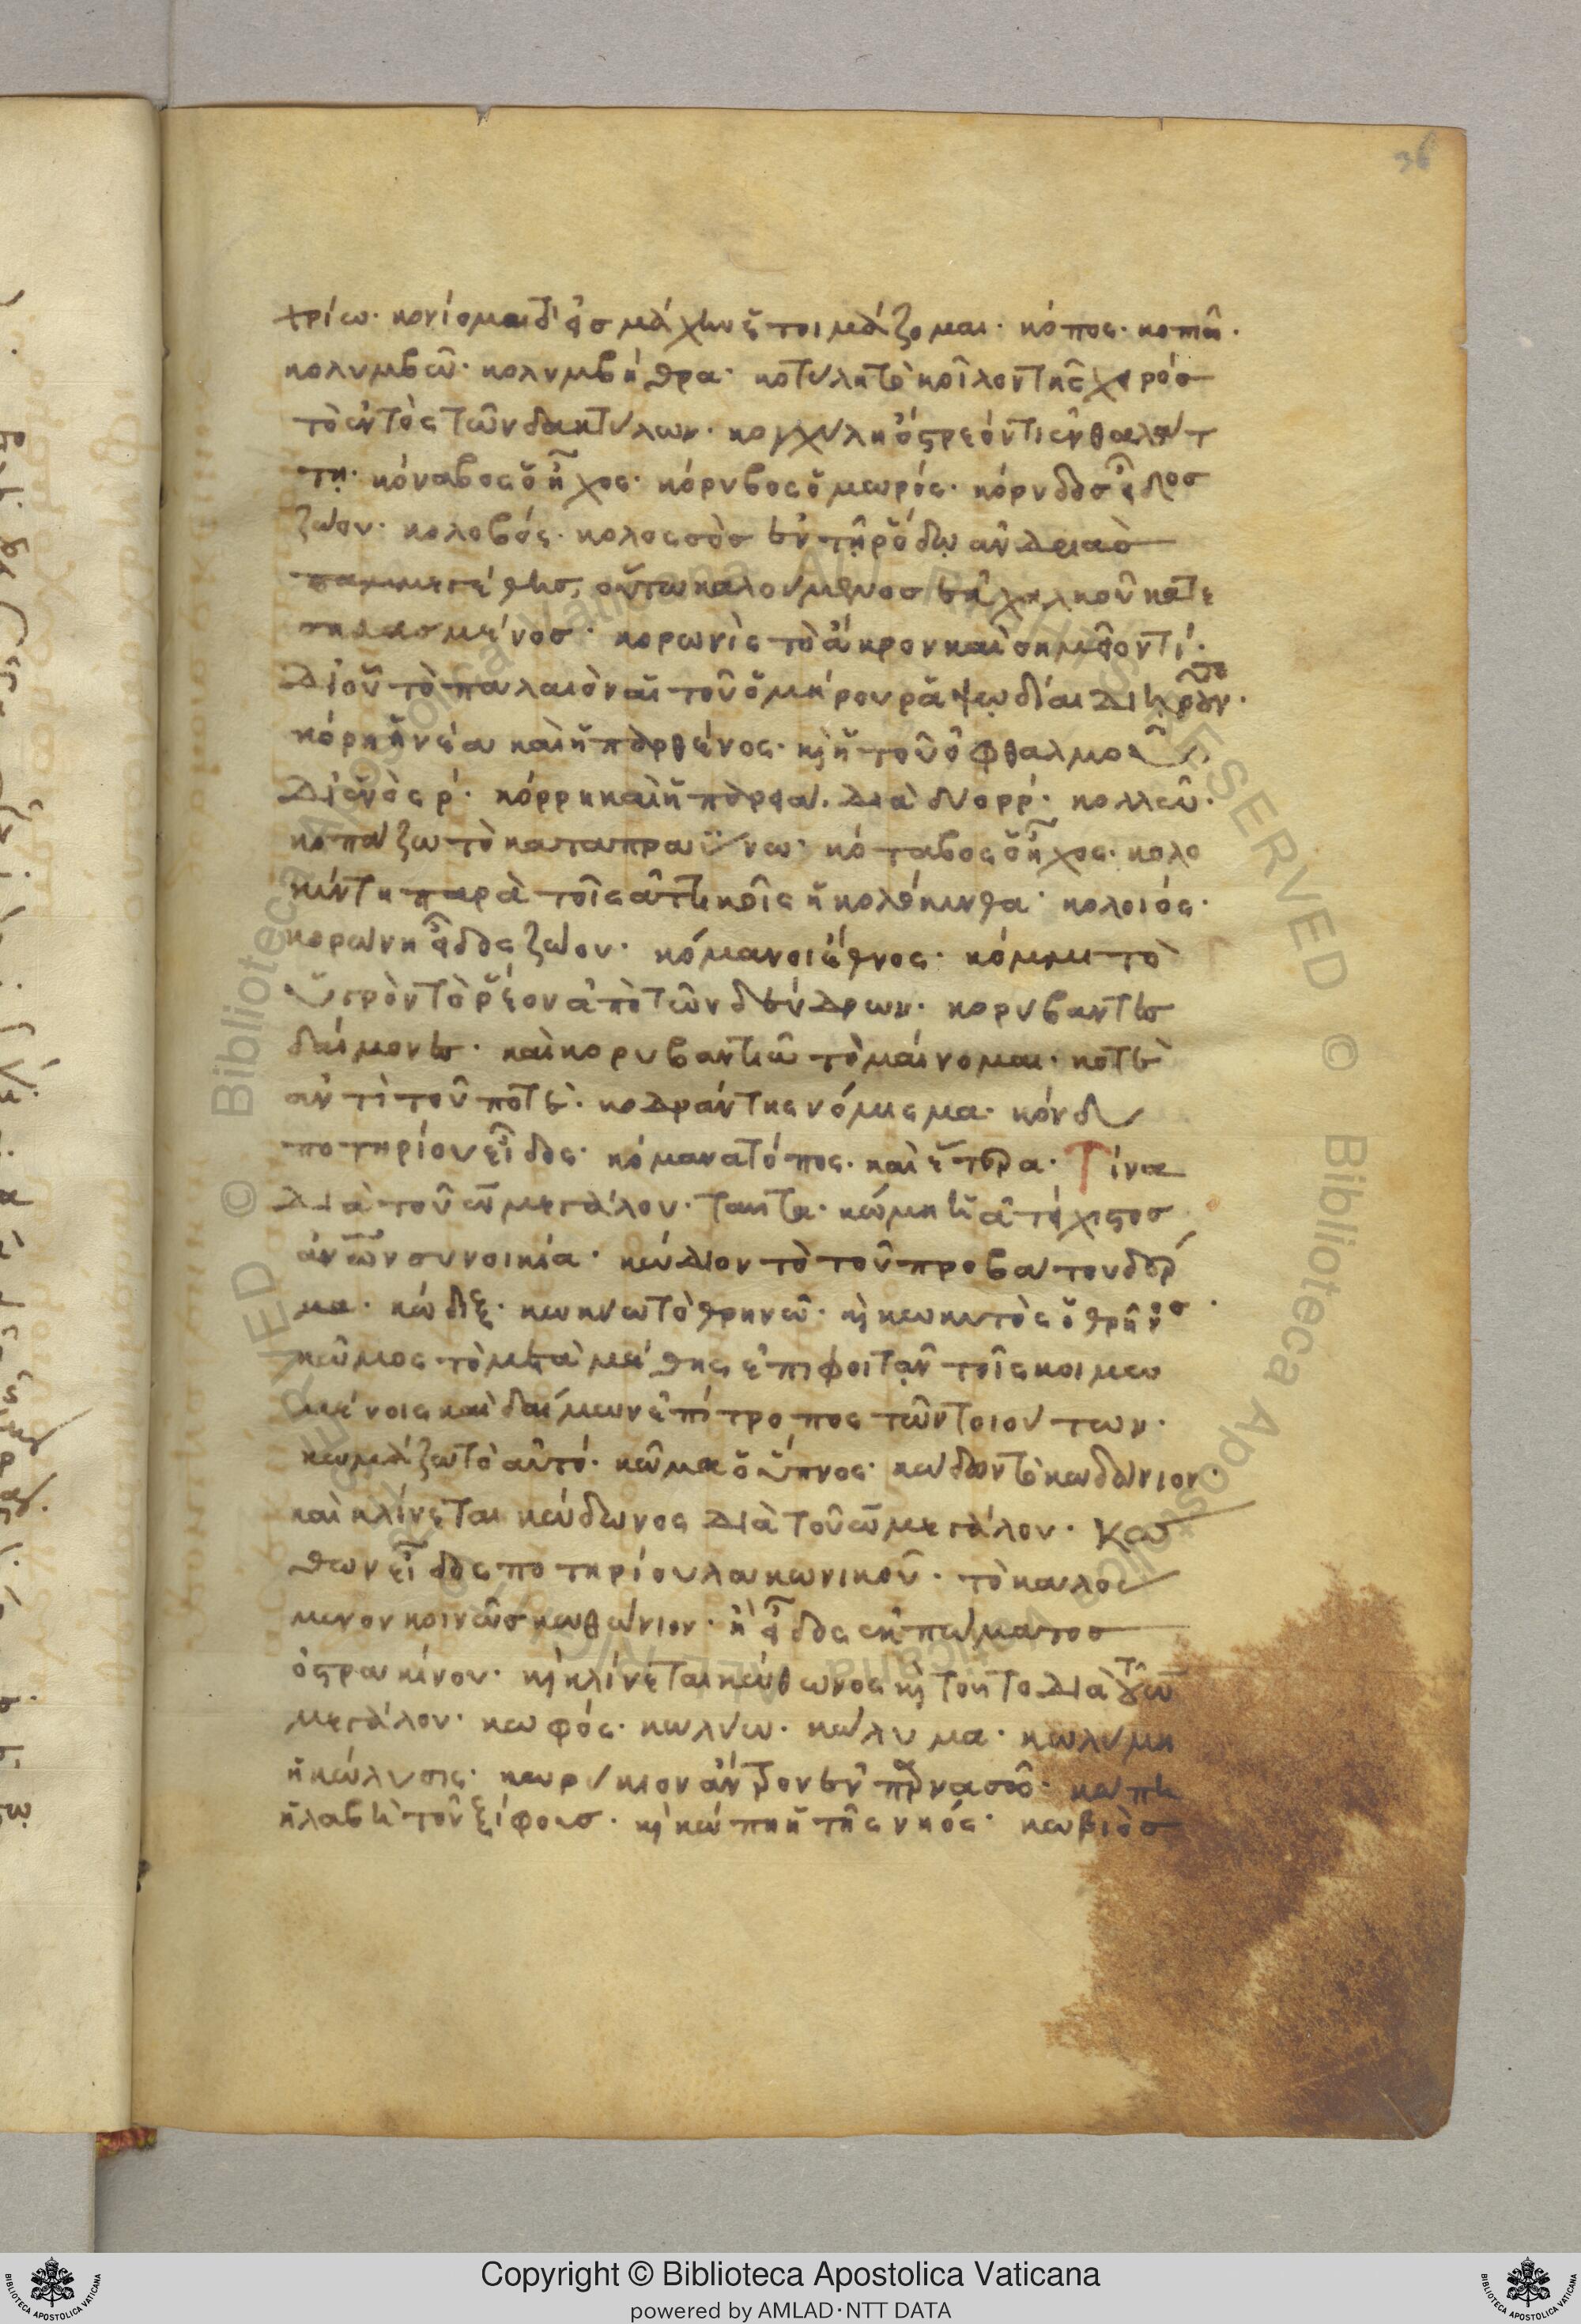 36
χρίω· κονίομαι δὲ εἰς μάχην ἑτοιμάζομαι· κόπος· κοπιῶ·
κολυμβῶ· κολυμβήθρα· κοτύλη τὸ κοῖλον τῆς χειρόσ
τὸ ἐντὸς τῶν δακτύλων· κογχύλη ὄστρεόν τι ἐν θαλάτ
τῃ· κόναβος ὁ ἦχος· κόρυβος ὁ μωρός· κόρυδος εἶδοσ
ζώου· κολοβός· κολοσσὸσ ἐν τῇ ῥόδῳ ἀνδριὰσ
παμμεγέθησ, οὕτω καλούμενοσ ἐκ χαλκοῦ κατε
σκευασμένοσ· κορωνὶς τὸ ἄκρον καὶ σημεῖόν τι·
δι' οὗ τὸ παλαιὸν αἱ τοῦ ὁμήρου ῥαψωδίαι διῃροῦντο·
κόρη ἡ νέα καὶ ἡ παρθένος· καὶ ἡ τοῦ ὀφθαλμοῦ
δι' ἑνὸς ρ· κόρρη καὶ ἡ παρειά· διὰ δύο ρρ·
κοπάζω τὸ καταπραΰνω· κόταβος ὁ ἦχος· κολο
κύντη παρὰ τοῖς ἀττικοῖς ἡ κολόκυνθα· κολοιός·
κορώνη εἶδος ζώου· κόμανοι ἔθνος· κόμμι τὸ
ὑγρὸν τὸ ῥέον ἀπὸ τῶν δένδρων· κορύβαντεσ
δαίμονεσ· καὶ κορυβαντιῶ τὸ μαίνομαι· κοτὲ
ἀντὶ τοῦ ποτὲ· κοδράντης νόμισμα· κόνδυ
ποτηρίου εἶδος· κόμανα τόπος· καὶ ἕτερα· Τίνα
διὰ τοῦ ω μεγάλου· ταῦτα· κώμη ἡ ἀτείχιστοσ
ἀνων συνοικία· κώδιον τὸ τοῦ προβάτου δέρ
μα· κώδιξ· κωκύω τὸ θρηνῶ· καὶ κωκυτὸς ὁ θρῆνοσ·
κῶμος τὸ μετὰ μέθης ἐπιφοιτᾶν τοῖς κοιμω
μένοις καὶ δαίμων ἐπίτροπος τῶν τοιούτων·
κωμάζω τὸ αὐτό· κῶμα ὁ ὕπνος· κώδων τὸ κωδώνιον·
καὶ κλίνεται κώδωνος διὰ τοῦ ω μεγάλου· κώ
θων εἶδος ποτηρίου λακωνικοῦ· τὸ καλού
μενον κοινῶσ κωθώνιον· ἢ εἶδος ἐκπώματοσ
ὀστρακίνου· καὶ κλίνεται κώθωνος καὶ τοῦτο διὰ τοῦ ω
μεγάλου· κωφός· κωλύω· κώλυμα· κωλύμη
ἡ κώλυσις· κωρύκιον ἄντρον ἐν παρνασσῶ· κώπη
ἡ λαβὴ τοῦ ξίφουσ· καὶ κώπη ἡ τῆς νηός· κωβιὸσ
Copyright © Biblioteca Apostolica Vaticana
powered by AMLAD·NTT DATA